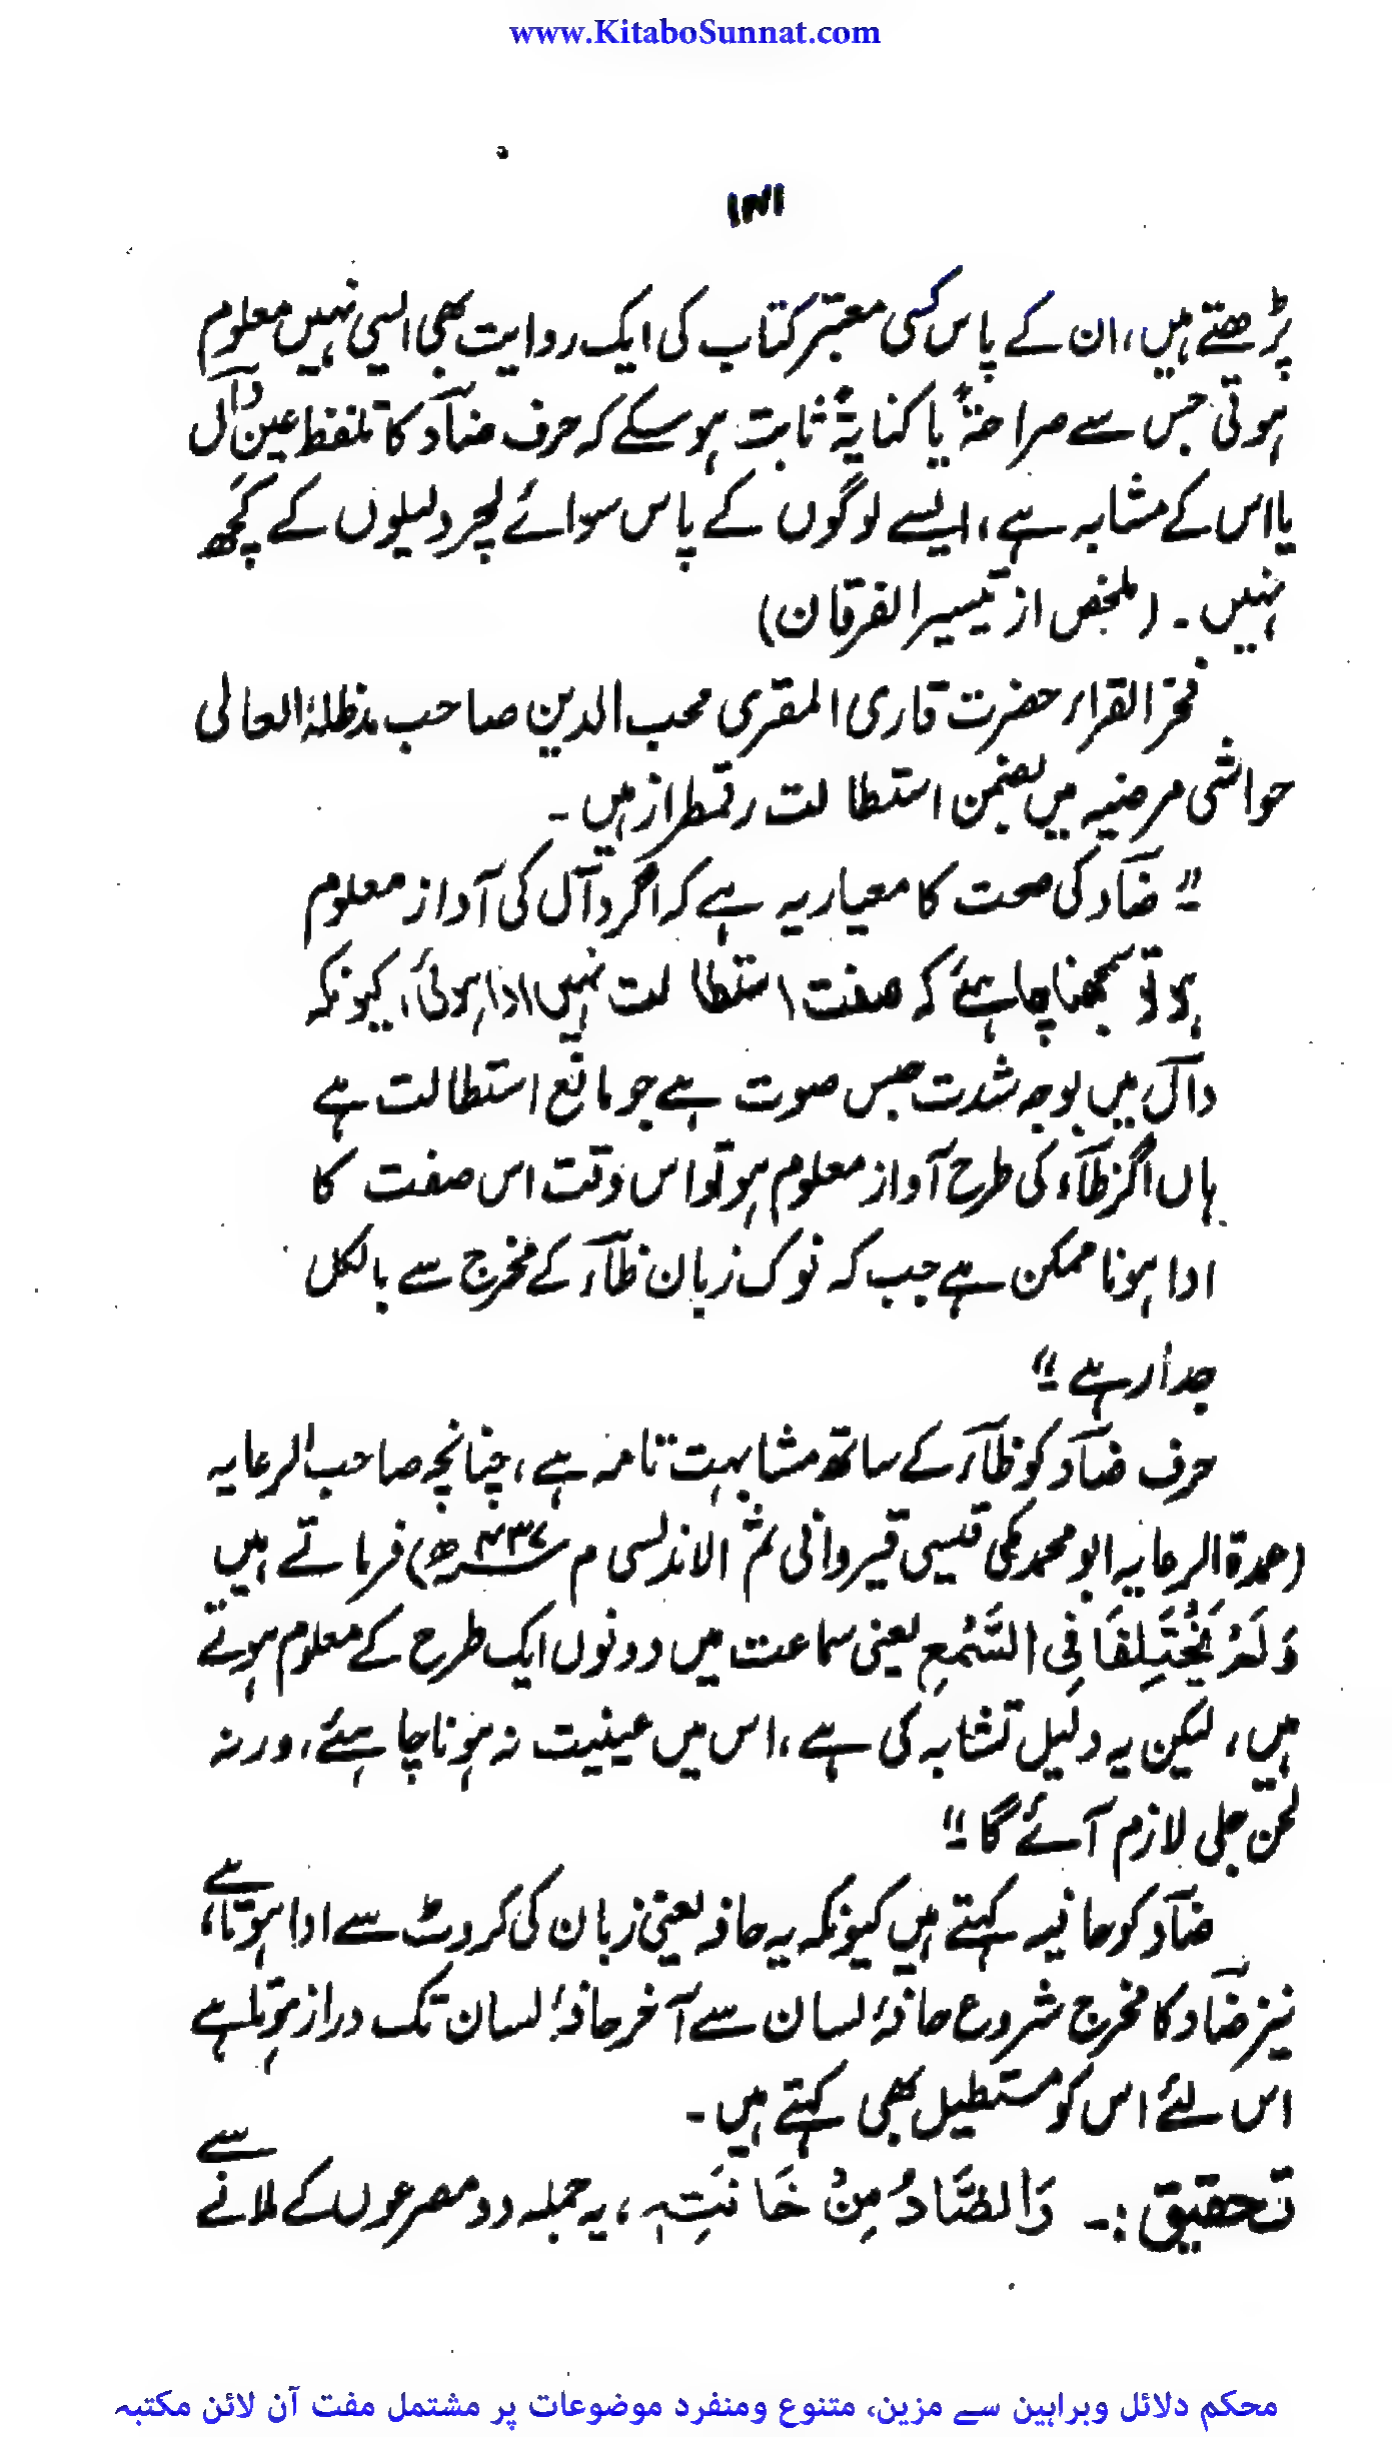 www.KitaboSunnat.com
۱۳۱
پڑھتے ہیں، ان کے پاس کسی معتبر کتاب کی ایک روایت بھی ایسی نہیں معلوم
ہوتی جس سے صراحۃً یا کنایۃً ثابت ہو سکے کہ حرف ضاد کا تلفظ عین دال
یا اس کے مشابہ ہے، ایسے لوگوں کے پاس سوائے لچر دلیلوں کے کچھ
نہیں ۔ (ملخص از تیسیر الفرقان)
فخر القراء حضرت قاری المقری محب الدین صاحب مدظلہٗ العالی
حواشی مرضیہ میں بضمن استطالت رقمطراز ہیں ۔
" ضاد کی صحت کا معیار یہ ہے کہ اگر دال کی آواز معلوم
ہو تو سمجھنا چاہئے کہ صفت استطالت نہیں ادا ہوئی، کیونکہ
دال میں بوجہ شدت حبس صوت ہے جو مانع استطالت ہے
ہاں اگر ظاء کی طرح آواز معلوم ہو تو اس وقت اس صفت کا
ادا ہونا ممکن ہے جب کہ نوک زبان ظاء کے مخرج سے بالکل
جدا رہے "
حرف ضاد کو ظاء کے ساتھ مشابہت تامہ ہے، چنانچہ صاحب الرعایہ
(عمدۃ الرعایہ ابو محمد مکی قیسی قیروانی ثم الاندلسی م ۴۳۷ھ) فرماتے ہیں
وَلَمْ يَخْتَلِفَا فِي السَّمْعِ یعنی سماعت میں دونوں ایک طرح کے معلوم ہوتے
ہیں، لیکن یہ دلیل تشابہ کی ہے، اس میں عینیت نہ ہونا چاہئے، ورنہ
لحن جلی لازم آئے گا "
ضاد کو حافیہ کہتے ہیں کیونکہ یہ حافہ یعنی زبان کی کروٹ سے ادا ہوتا ہے،
نیز ضاد کا مخرج شروع حافۂ لسان سے آخر حافۂ لسان تک دراز ہوتا ہے
اس لئے اس کو مستطیل بھی کہتے ہیں ۔
تحقیق :- وَالضَّادُ مِنْ حَافَتِہٖ ، یہ جملہ دو مصرعوں کے ملانے سے
محکم دلائل وبراہین سے مزین، متنوع ومنفرد موضوعات پر مشتمل مفت آن لائن مکتبہ